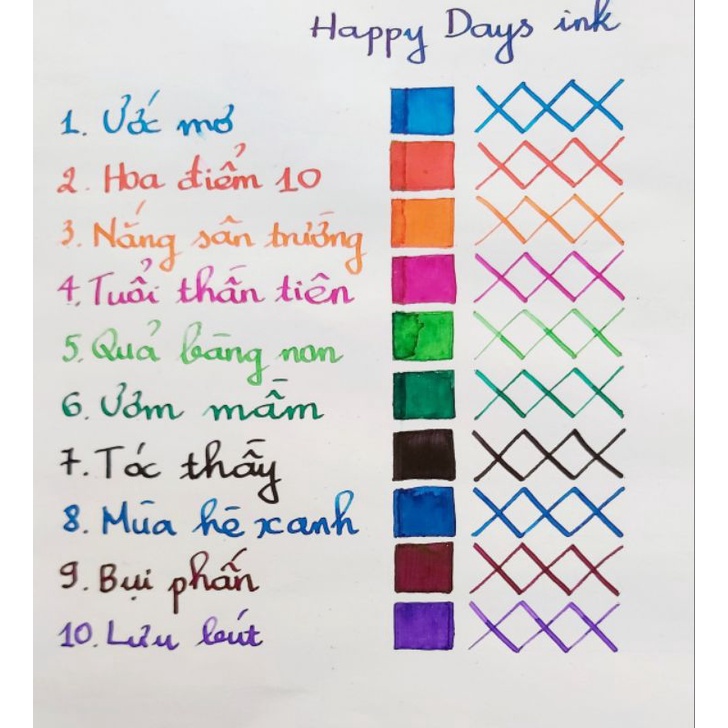 Happy Days ink
1. Ước mơ
2. Hoa điểm 10
3. Nắng sân trường
4. Tuổi thần tiên
5. Quả bàng non
6. Ươm mầm
7. Tóc thầy
8. Mùa hè xanh
9. Bụi phấn
10. Lưu bút